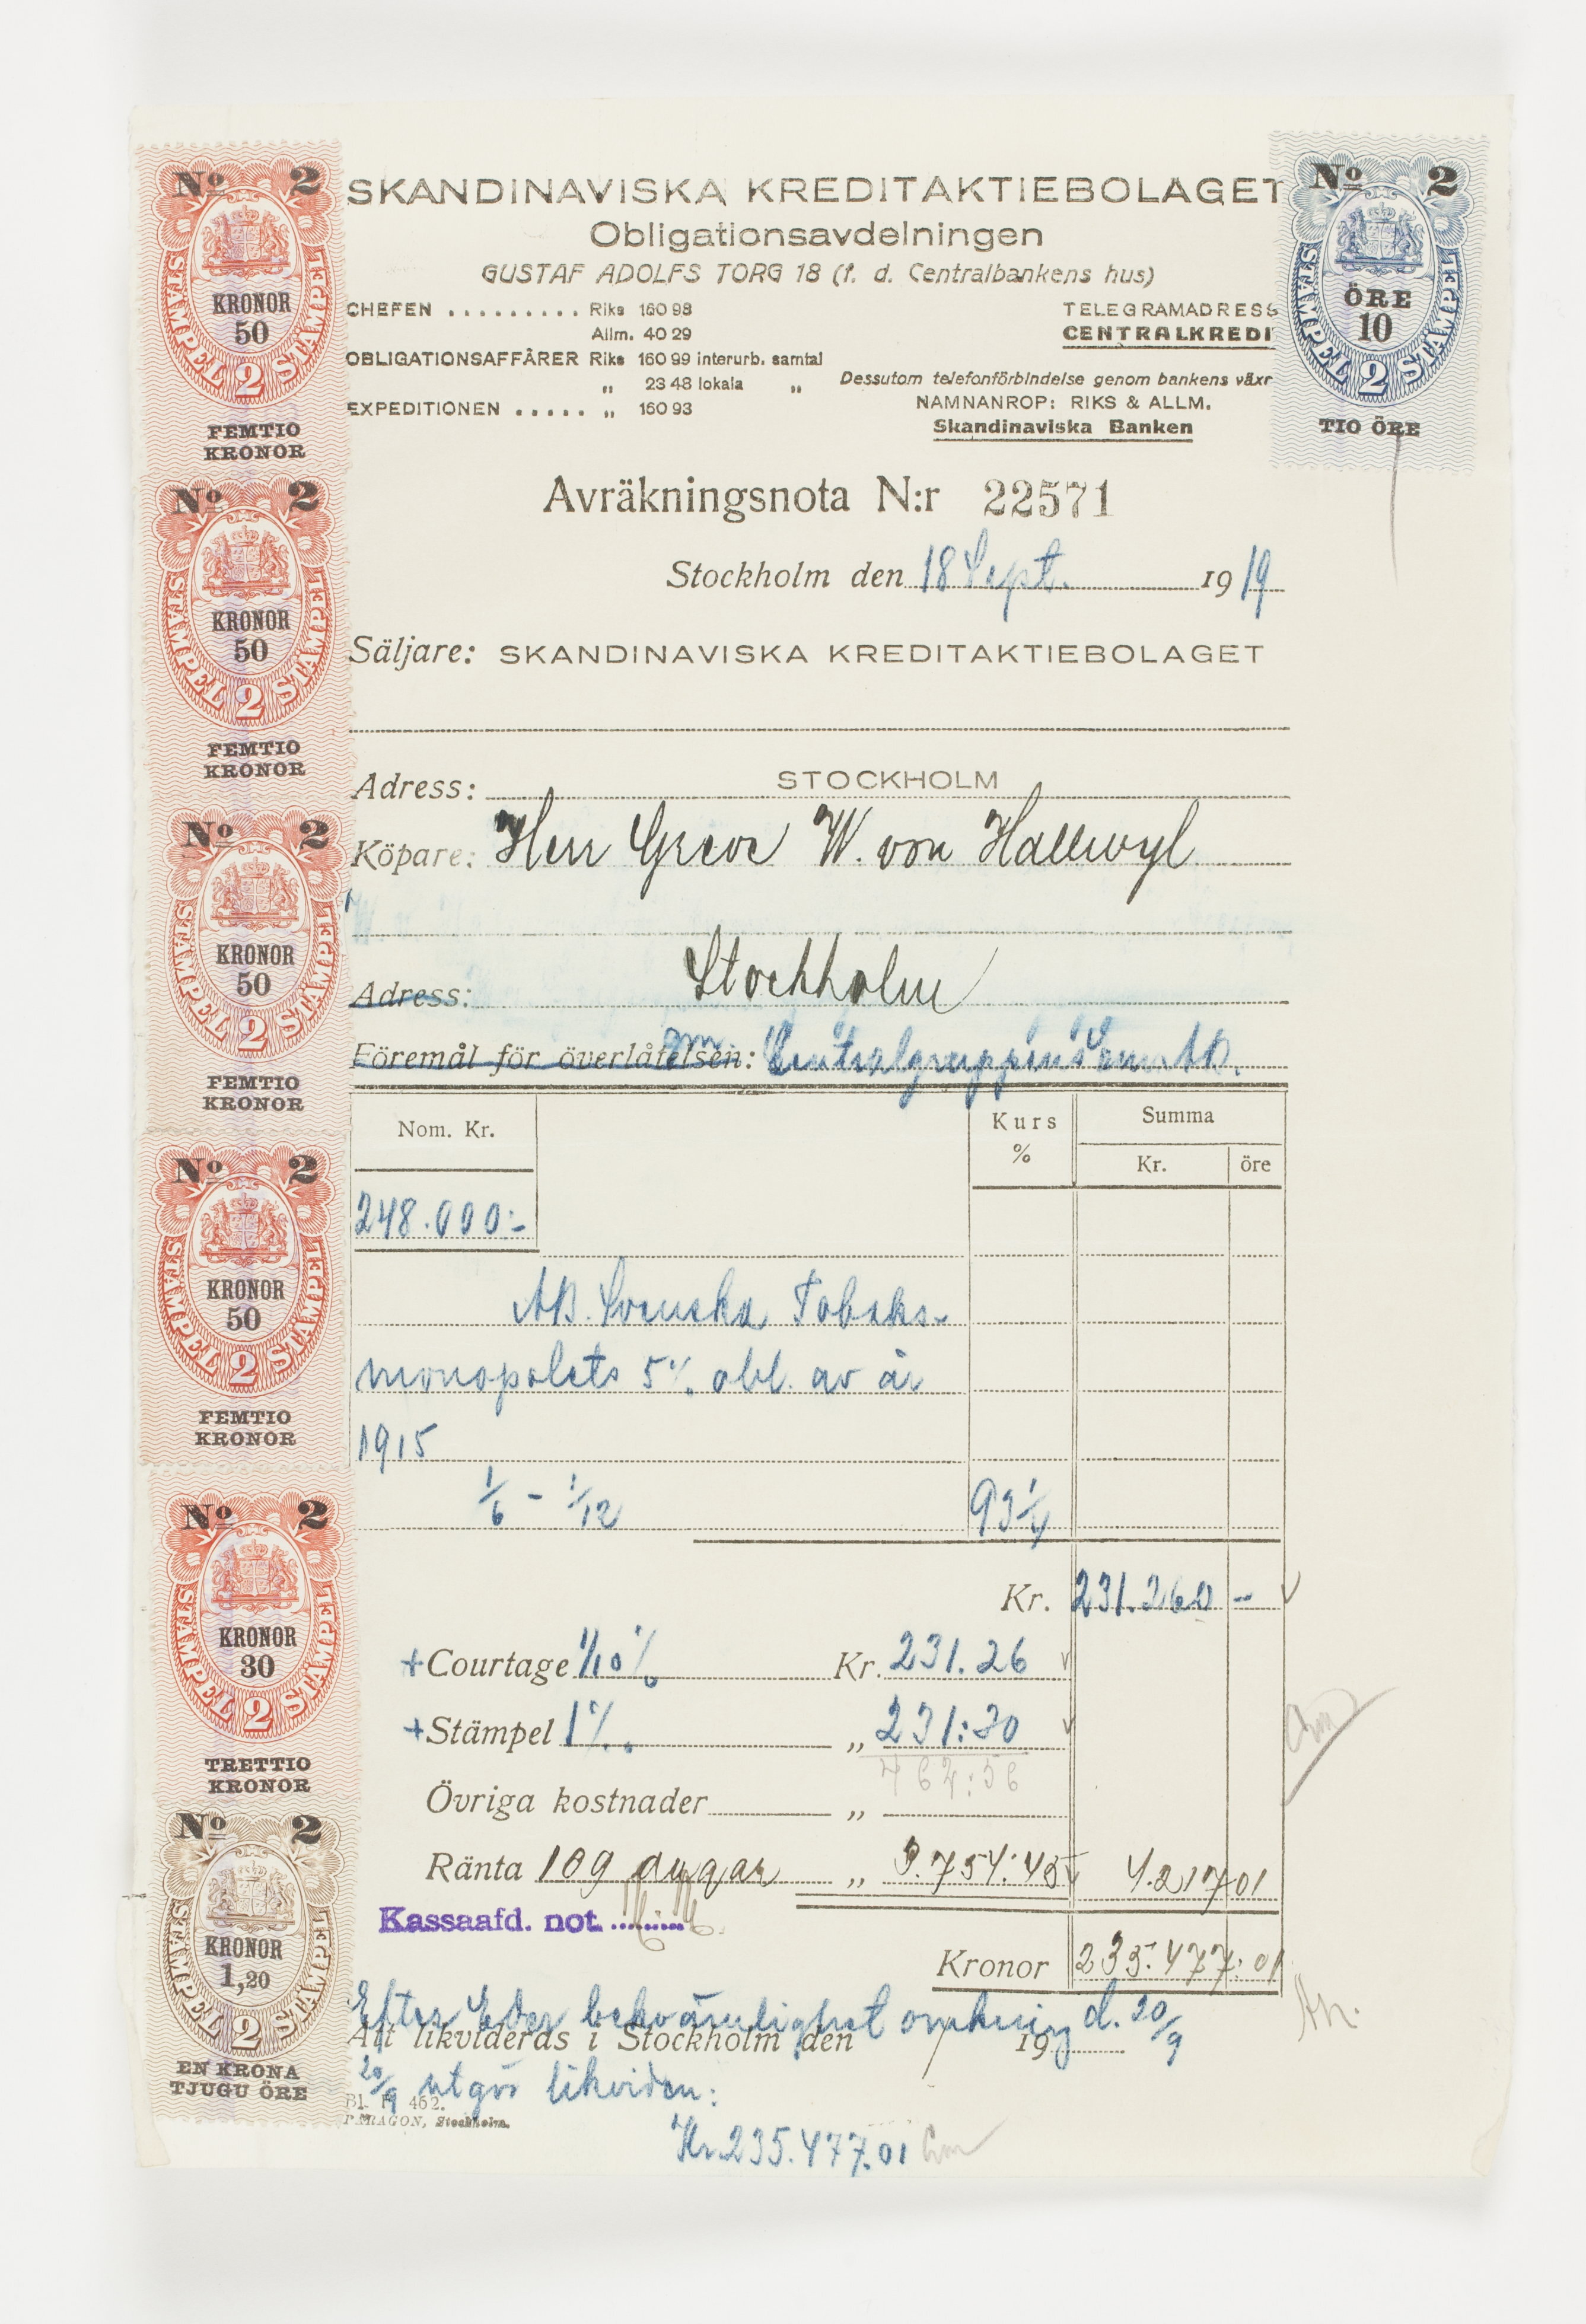 SKANDINAVISKA KREDITAKTIEBOLAGET
Obligationsavdelningen
GUSTAF ADOLFS TORG 18 (f. d. Centralbankens hus)
CHEFEN ......... Riks 160 98
Allm. 40 29
OBLIGATIONSAFFÄRER Riks 160 99 interurb. samtal
„ 23 48 lokala „
EXPEDITIONEN ..... „ 160 93
TELEGRAMADRESS
CENTRALKREDI
Dessutom telefonförbindelse genom bankens växr
NAMNANROP: RIKS & ALLM.
Skandinaviska Banken
No 2
ÖRE
10
STÄMPEL 2 STÄMPEL
TIO ÖRE
No 2
KRONOR
50
STÄMPEL 2 STÄMPEL
FEMTIO
KRONOR
No 2
KRONOR
50
STÄMPEL 2 STÄMPEL
FEMTIO
KRONOR
No 2
KRONOR
50
STÄMPEL 2 STÄMPEL
FEMTIO
KRONOR
No 2
KRONOR
50
STÄMPEL 2 STÄMPEL
FEMTIO
KRONOR
No 2
KRONOR
30
STÄMPEL 2 STÄMPEL
TRETTIO
KRONOR
No 2
KRONOR
1,20
STÄMPEL 2 STÄMPEL
EN KRONA
TJUGU ÖRE
Avräkningsnota N:r 22571
Stockholm den 18 Sept. 1919
Säljare: SKANDINAVISKA KREDITAKTIEBOLAGET
Adress: STOCKHOLM
Köpare: Herr Greve W. von Hallwyl
Adress: Stockholm
Föremål för överlåtelsen:
Nom. Kr. Kurs % Summa
Kr. öre
248.000:-
AB. Svenska Tobaks-
monopolets 5% obl. av år
1915
1/6 - 1/12 93 1/4
Kr. 231.260 -
+ Courtage 1/10 % Kr. 231.26
+ Stämpel 1‰ „ 231:30
462:56
Övriga kostnader „
Ränta 109 dagar „ 3.754:45 4.217 01
Kassaafd. not.
Kronor 235.477:01
Efter Eder bekvämlighet d. 20/9
Att likvideras i Stockholm den / 19
20/9 utgör likviden:
Bl. 462.
PARAGON, Stockholm.
Kr. 235.477.01